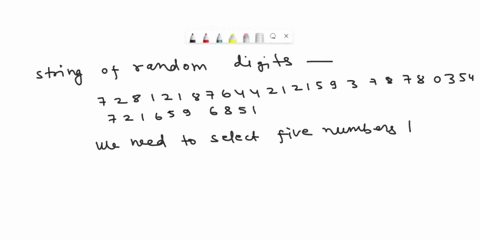 string of random digits —
7 2 8 1 2 1 8 7 6 4 4 2 1 2 1 5 9 3 7 8 7 8 0 3 5 4
7 2 1 6 5 9 6 8 5 1
we need to select five numbers |